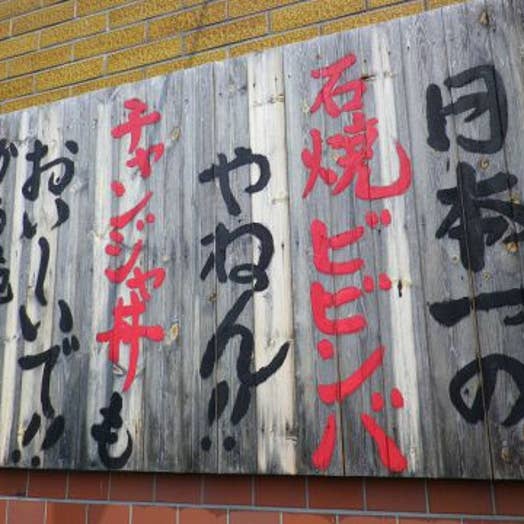 日本一の
石焼ビビンバ
やねん!!
チャンジャ丼も
おいしいで!!